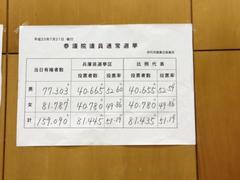 平成25年7月21日 執行
参議院議員通常選挙
伊丹市選挙管理委員会
当日有権者数 兵庫県選挙区 比例代表
投票者数 投票率 投票者数 投票率
男 77.303 40.665 52.60 40.655 52.59
女 81.787 40.780 49.86 40.780 49.86
計 159.090 81.445 51.19 81.435 51.19